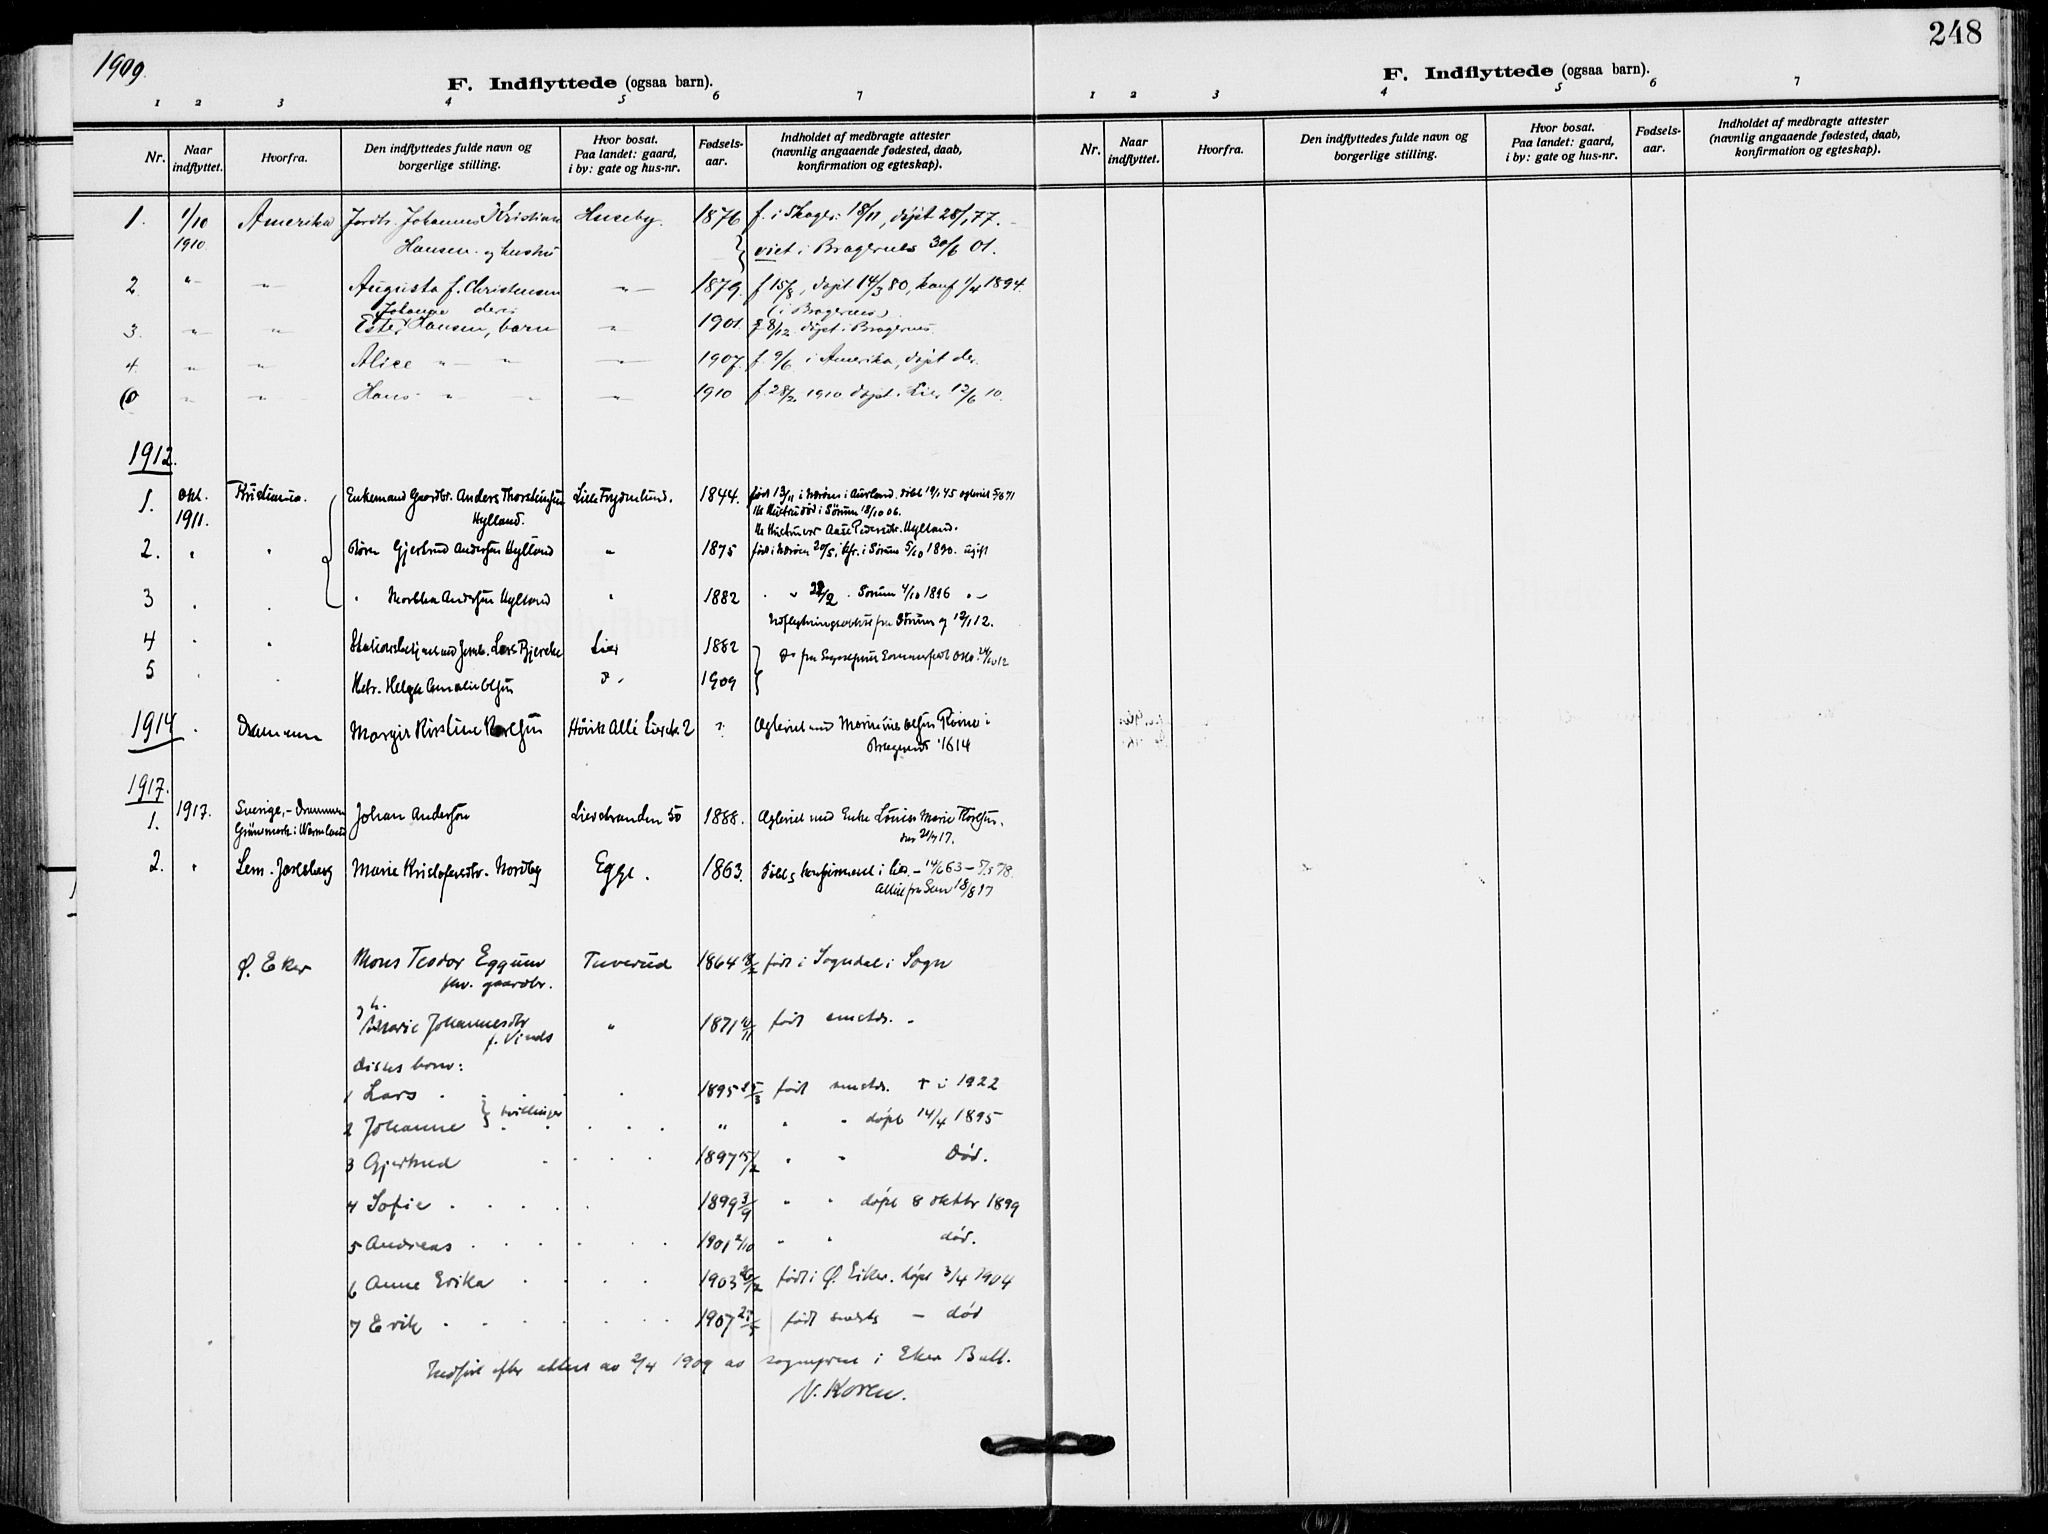 1909.
248
F. Indflyttede (ogsaa barn).
1 2 3 4 5 6 7
Nr. Naar indflyttet. Hvorfra. Den indflyttedes fulde navn og borgerlige stilling. Hvor bosat. Paa landet: gaard, i by: gate og hus-nr. Fødsels-aar. Indholdet af medbragte attester (navnlig angaaende fødested, daab, konfirmation og egteskap).
1. 1/10 Amerika Jordbr. Johannes Kristian Huseby. 1876 f. i Skoger 18/11, døpt 28/1 77.
1910. Hansen og hustru viet i Bragernes 30/6 01.
2. " " Augusta f. Christensen " 1879. f 15/8, døpt 14/3 80, konf 1/4 1894.
Johanne deres (i Bragernes).
3. " " Ester Hansen, barn " 1901. f 8/12 døpt i Bragernes.
4. " " Alice " " " 1907. f. 9/6 i Amerika, døpt der.
" " Hans " " " 1910 f. 28/2 1910 døpt i Lier 12/6 10.
1912.
1. Okt. Kristiania. Enkemand Gaardbr. Anders Thorstensen Lille Frydenlund. 1844. født 13/11 i Aurland.
1911. Hylland. i Sørum 18/10 06.
Aase Pedersdtr. Hylland.
2. " " Børn Gjertrud Andersen Hylland " 1875 20/5, kfr. i Sørum 5/10 1890. ugift
3 " " " Andersen Hylland " 1882 " " 28/2 . Sørum 4/10 1896 " –
Indflytningsattest fra Sørum og 12/1 12.
4 " " Lars Bjercke Lier 1882
5 " " Helga Amalie Olsen D " 1909
1914 " Drammen Margit Kirstine Karlsen Høvik Allé Lierstr. 2 " Agteviet med Olsen i
Bragernes 1914
1917.
1. 1917. Sverige, – Drammen Johan Anderson Lierstranden 50 1888. Agteviet med Enke Lovise Marie Karlsen.
Grünmark i Wermland
2. " Sem. Jarlsberg Marie Kristofersdtr. Nordby Egge. 1863. Døbt & konfirmeret i Lier – 14/6 63 –
Attest fra Sem 18/8 17
Ø. Eker Mons Teodor Eggum Tuverud 1864 18/2 født i Sogndal i Sogn
fhv. gaardbr.
og h.
Marie Johannesdtr " 1871 født smstds. "
f. Vinds
Disses barn:
1 Lars . } tvillinger . 1895 25/3 født smstds. + i 1922
2 Johanne " " " døpt 14/4 1895
3 Gjertrud . . . . 1897 15/2 " " Død.
4 Sofie . . . . . 1899 3/9 " " døpt 8 oktbr 1899
5 Andreas . . . . . 1901 2/10 " " død.
6 Anne Erika . . . . 1903 26/12 født i Ø. Eiker. døpt 3/4 1904
7 Erik . . . . . . 1907 født smsteds – død
Indført efter attest av 2/4 1909 av sogneprest i Eker Bull.
N. Koren.
F. Indflyttede (ogsaa barn).
1 2 3 4 5 6 7
Nr. Naar indflyttet. Hvorfra. Den indflyttedes fulde navn og borgerlige stilling. Hvor bosat. Paa landet: gaard, i by: gate og hus-nr. Fødsels-aar. Indholdet af medbragte attester (navnlig angaaende fødested, daab, konfirmation og egteskap).